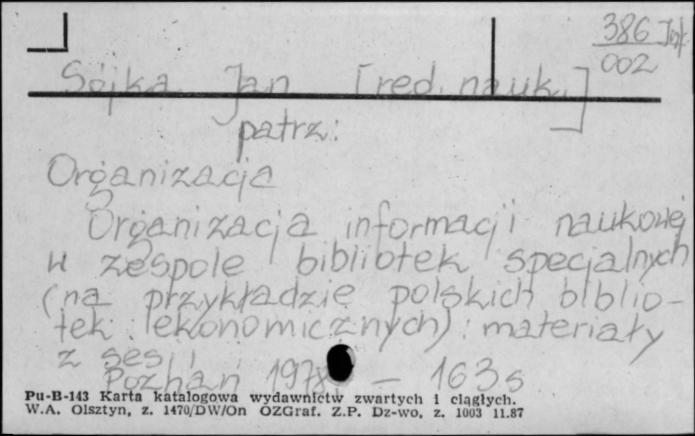 386 Inf.
002
Sójka Jan [red. nauk.]
patrz:
Organizacja
Organizacja informacji naukowej
w zespole bibliotek specjalnych
(na przykładzie polskich biblio-
tek ekonomicznych) : materiały
z sesji
Poznań 1978 – 163 s
Pu-B-143 Karta katalogowa wydawnictw zwartych i ciągłych.
W.A. Olsztyn, z. 1470/DW/On OZGraf. Z.P. Dz-wo, z. 1003 11.87